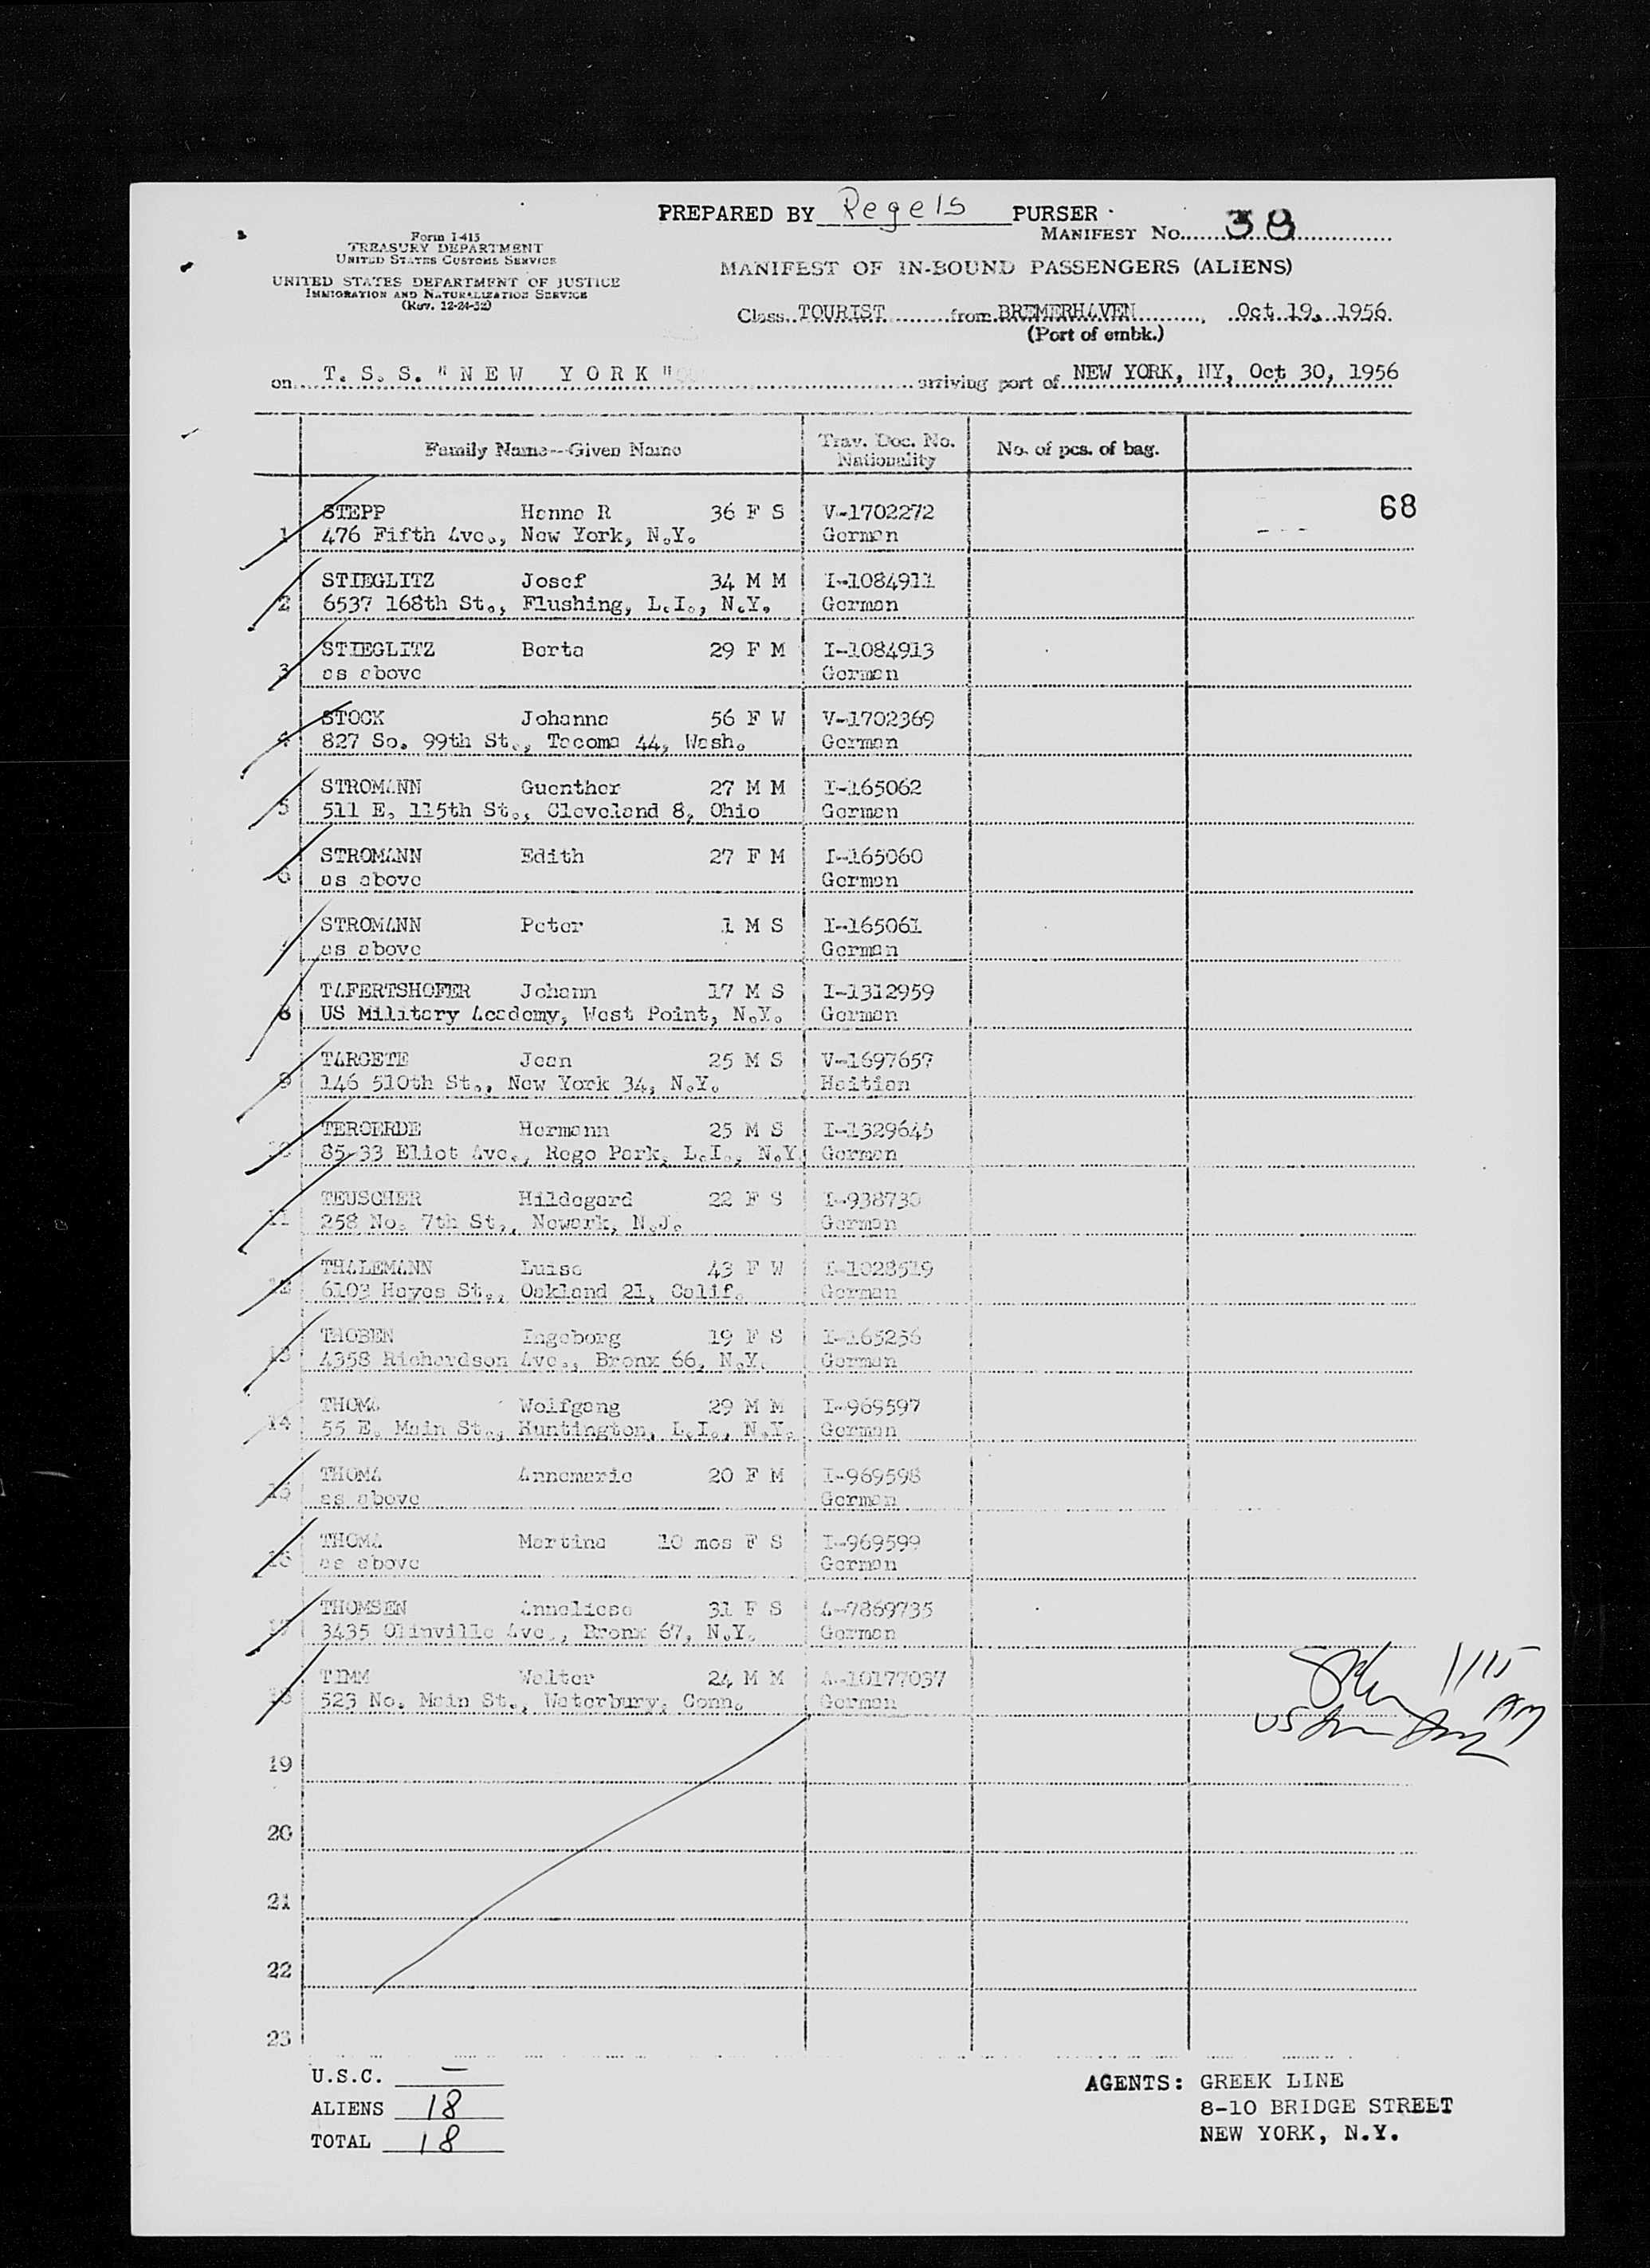 PREPARED BY Regels PURSER
MANIFEST No. 38
Form I-415
TREASURY DEPARTMENT
UNITED STATES CUSTOMS SERVICE
UNITED STATES DEPARTMENT OF JUSTICE
IMMIGRATION AND NATURALIZATION SERVICE
(Rev. 12-24-52)
MANIFEST OF IN-BOUND PASSENGERS (ALIENS)
Class TOURIST from BREMERHAVEN, Oct 19, 1956
(Port of embk.)
on T. S. S. "NEW YORK" arriving port of NEW YORK, NY, Oct 30, 1956
Family Name--Given Name Trav. Doc. No. Nationality No. of pcs. of bag.
68
1 STEPP Hanna R 36 F S V-1702272
476 Fifth Ave., New York, N.Y. German
2 STIEGLITZ Josef 34 M M I-1084911
6537 168th St., Flushing, L.I., N.Y. German
3 STIEGLITZ Berta 29 F M I-1084913
as above German
4 STOCK Johanna 56 F W V-1702369
827 So. 99th St., Tacoma 44, Wash. German
5 STROMANN Guenther 27 M M I-165062
511 E. 115th St., Cleveland 8, Ohio German
6 STROMANN Edith 27 F M I-165060
as above German
STROMANN Peter 1 M S I-165061
as above German
8 TAFERTSHOFER Johann 17 M S I-1312959
US Military Academy, West Point, N.Y. German
9 TARGETE Jean 25 M S V-1697657
146 510th St., New York 34, N.Y. Haitian
10 TEROERDE Hermann 25 M S I-1329645
85-33 Eliot Ave., Rego Park, L.I., N.Y. German
11 TEUSCHER Hildegard 22 F S I-938730
258 No. 7th St., Newark, N.J. German
12 THALEMANN Luise 43 F W I-1028519
6103 Hayes St., Oakland 21, Calif. German
13 THOBEN Ingeborg 19 F S I-165236
4358 Richardson Ave., Bronx 66, N.Y. German
14 THOMA Wolfgang 29 M M I-969597
55 E. Main St., Huntington, L.I., N.Y. German
15 THOMA Annemarie 20 F M I-969598
as above German
16 THOMA Martina 10 mos F S I-969599
as above German
17 THOMSEN Anneliese 31 F S A-7869735
3435 Olinville Ave., Bronx 67, N.Y. German
18 TIMM Walter 24 M M A-10177037
523 No. Main St., Waterbury, Conn. German
1115
AM
US
19
20
21
22
23
U.S.C. —
ALIENS 18
TOTAL 18
AGENTS: GREEK LINE
8-10 BRIDGE STREET
NEW YORK, N.Y.